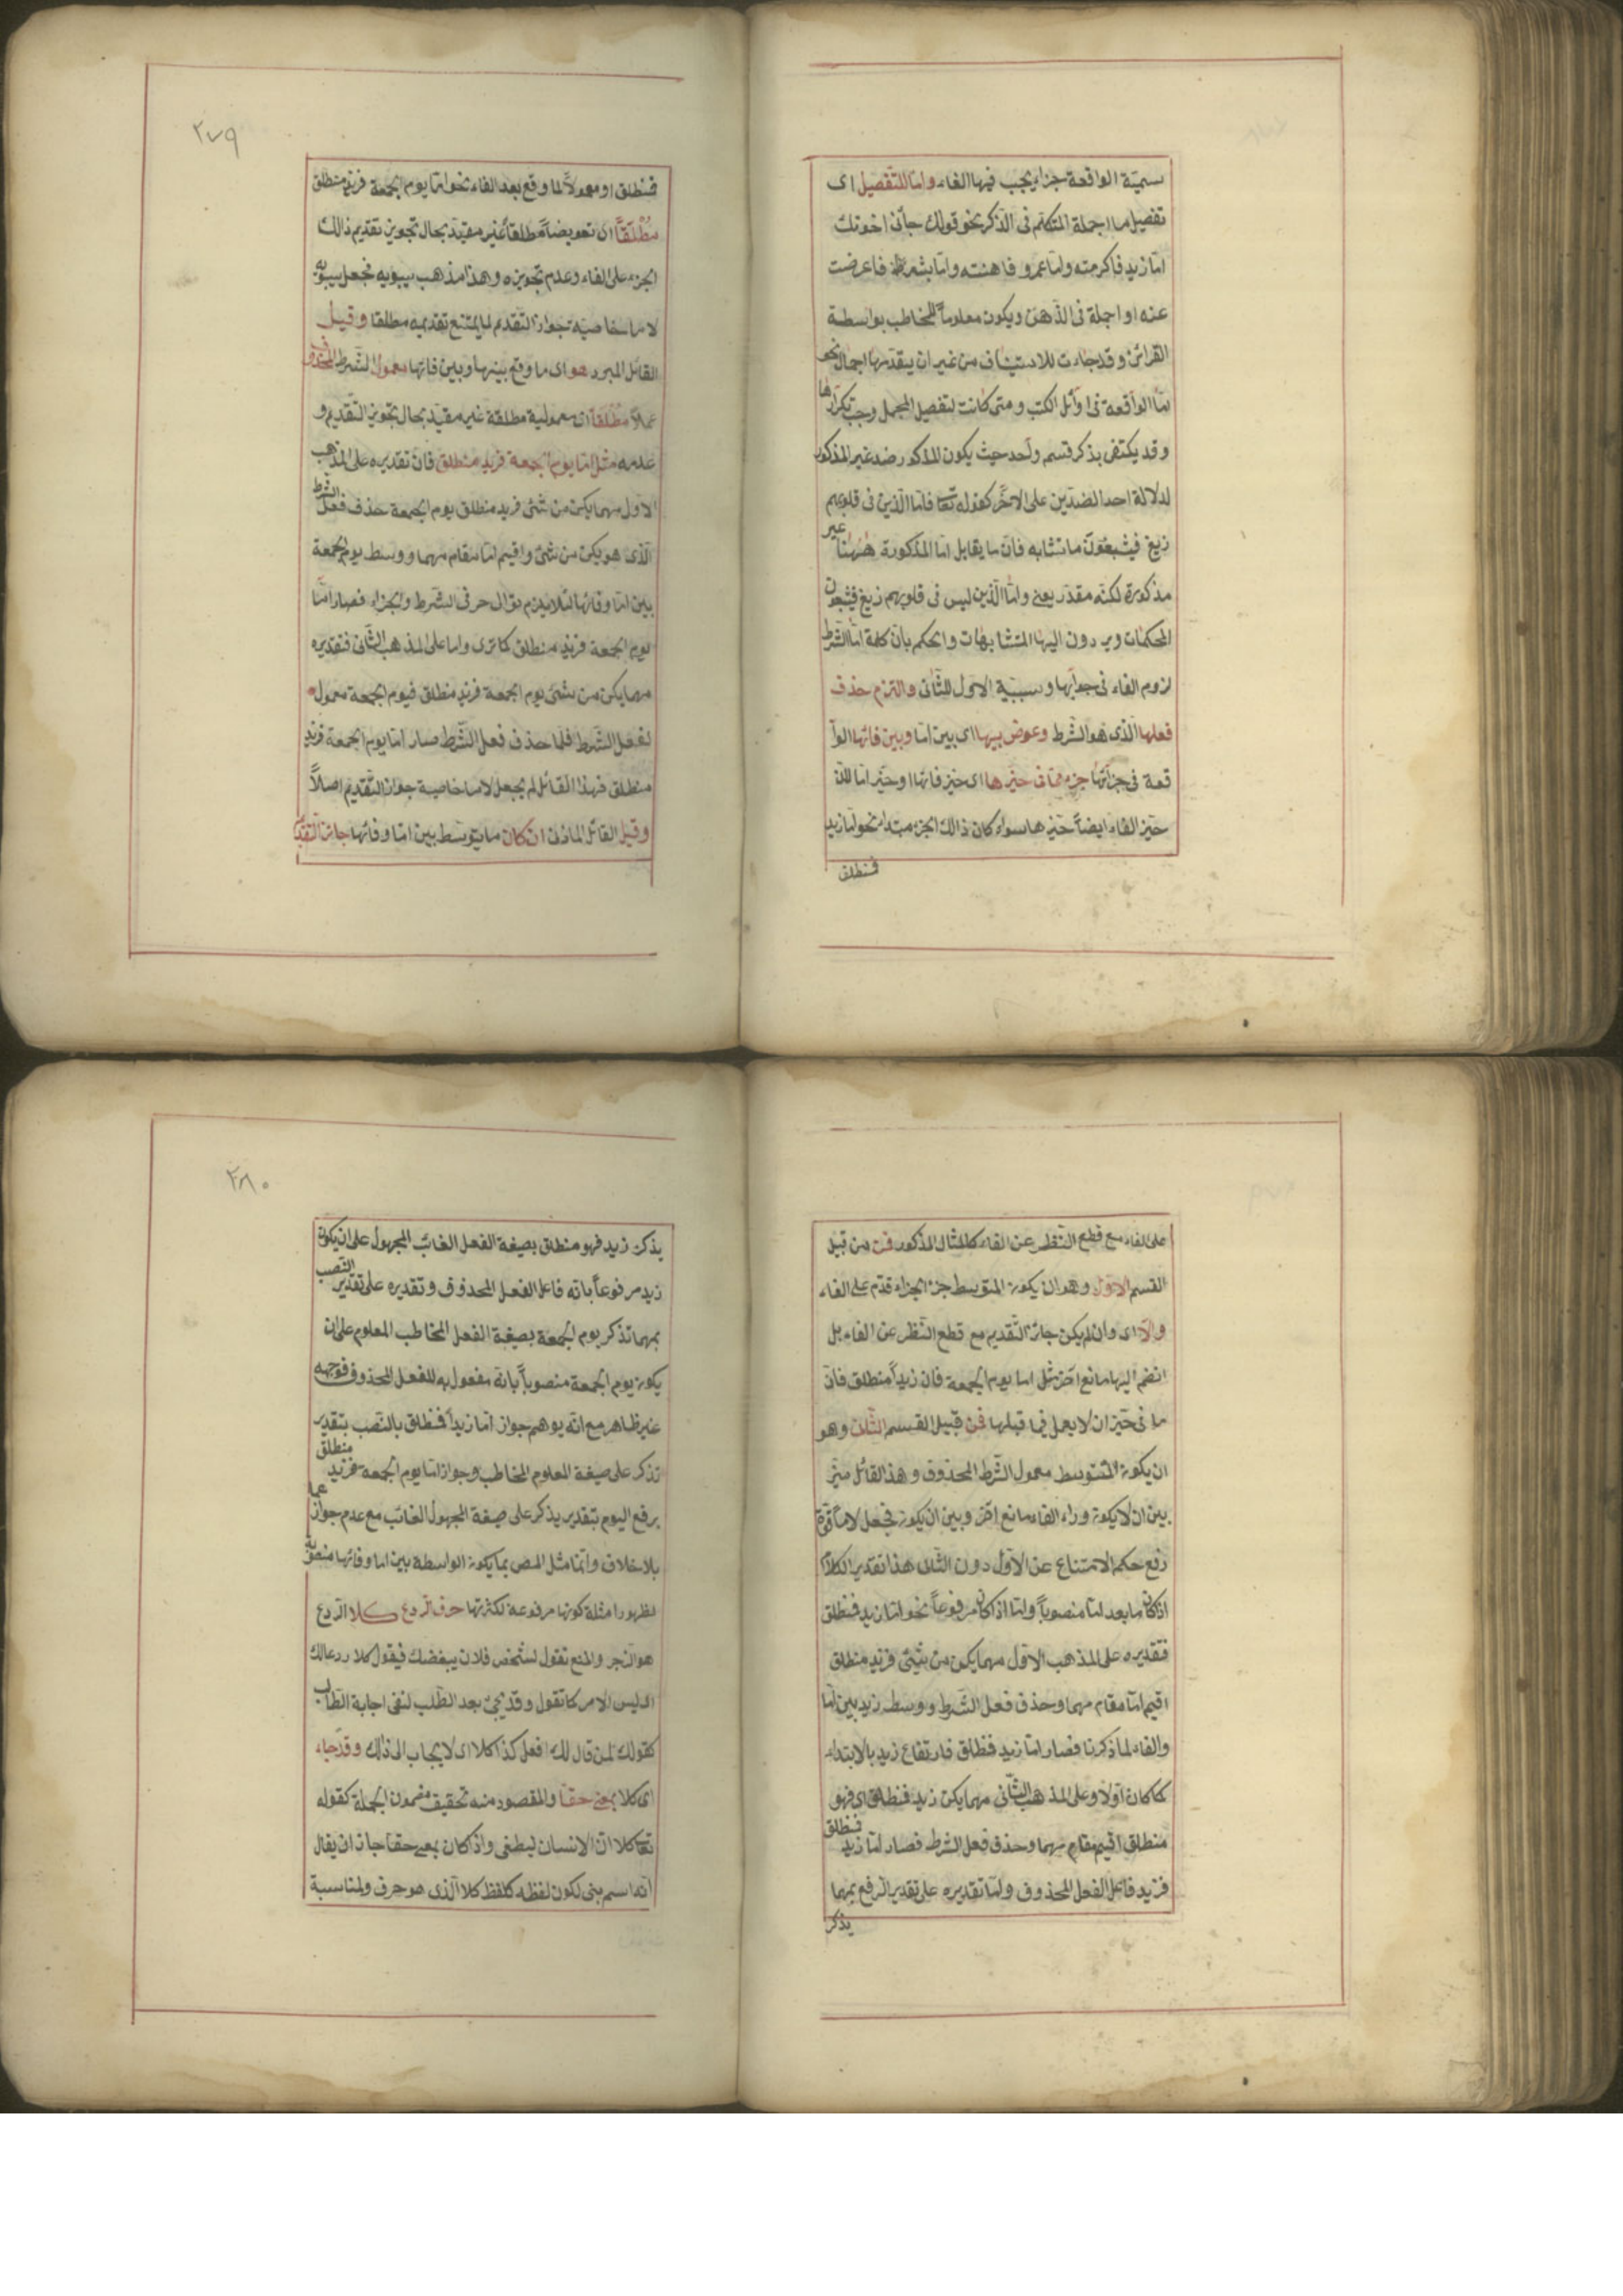 سميّة الواقعة جزاء يجب فيها الفاء واما للتفصيل اى
تفصيل ما اجمله المتكلم فى الذكر نحو قولك جائنى اخوتك
امّا زيد فاكرمته وامّا عمرو فاهنته وامّا بشر فاعرضت
عنه او اجمله فى الذهن ويكون معلوماً للمخاطب بواسطة
القرائن وقد جاءت للاستيناف من غير ان يتقدمها اجمال نحو
امّا الواقعة فى اوائل الكتب ومتى كانت لتفصيل المجمل وجب تكرارها
وقد يكتفى بذكر قسم واحد حيث يكون المذكور ضد غير المذكور
لدلالة احد الضدّين على الاخر كقوله تعا فامّا الّذين فى قلوبهم
زيغ فيتّبعون ما تشابه فانّ ما يقابل امّا المذكورة ههنا غير
مذكورة لكنّه مقدّر يعنى وامّا الّذين ليس فى قلوبهم زيغ فيتّبعون
المحكمات ويردون اليها المتشابهات والحكم بانّ كلمة امّا للشرط
لزوم الفاء فى جوابها وسببيّة الاول للثّانى والتزم حذف
فعلها الّذى هو الشّرط وعوض بينها اى بين امّا وبين فائها الوا
قعة فى جزائها جزء ممّا فى حيّزها اى حيّز فائها او حيّز امّا لانّ
حيّز الفاء ايضاً حيّزها سواء كان ذالك الجزء مبتداء نحو امّا زيد
فمنطلق
٢٧٩
فمنطلق او معمولاً لما وقع بعد الفاء نحو امّا يوم الجمعة فزيد منطلق
مُطْلَقاً اى تعويضاً مطلقاً غير مقيّد بحال تجويز تقديم ذالك
الجزء على الفاء وعدم تجويزه وهذا مذهب سيبويه فجعل سيبويه
لامّا خاصيّة تجواز التقدم لما يمتنع تقديمه مطلقا وقيل
القائل المبرد هو اى ما وقع بينها وبين فائها معمول الشرط المحذوف
عملاً مُطْلَقاً اى معمولية مطلقة غير مقيّد بحال تجويز التّقديم و
عدمه مثل امّا يوم الجمعة فزيد منطلق فانّ تقديره على المذهب
الاول مهما يكن من شئ فزيد منطلق يوم الجمعة حذف فعل الشرط
الّذى هو يكن من شئ واقيم امّا مقام مهما ووسط يوم الجمعة
بين امّا وفائها لئلا يلزم توالى حرفى الشّرط والجزاء فصار امّا
يوم الجمعة فزيد منطلق كما ترى واما على المذهب الثّانى فتقديره
مهما يكن من شئ يوم الجمعة فزيد منطلق فيوم الجمعة معمول
لفعل الشّرط فلما حذف فعل الشّرط صار امّا يوم الجمعة فزيد
منطلق فهذا القائل لم يجعل لاما خاصية جواز التّقديم اصلاً
وقيل القائل المازنى ان كان ما يتوسط بين امّا وفائها جائز التّقديم
على الفاء مع قطع النّظر عن الفاء كالمثال المذكور فمن قبيل
القسم الاوّل وهو ان يكون المتوسط جزء الجزاء قدّم على الفاء
والّا اى وان لم يكن جائز التّقديم مع قطع النّظر عن الفاء بل
انضم اليها مانع اخر مثل اما يوم الجمعة فان زيداً منطلق فانّ
ما فى حيّز ان لا يعمل فيما قبلها فمن قبيل القسم الثّانى وهو
ان يكون المتوسط معمول الشّرط المحذوف وهذا القائل ميّز
بين ان لا يكون وراء الفاء مانع اخر وبين ان يكون فجعل لامّا قوة
رفع حكم الامتناع عن الاوّل دون الثّانى هذا تقدير الكلام
اذا كان ما بعد امّا منصوباً وامّا اذا كان مرفوعاً نحو امّا زيد فمنطلق
فتقديره على المذهب الاول مهما يكن من شئ فزيد منطلق
اقيم امّا مقام مهما وحذف فعل الشّرط ووسط زيد بين امّا
والفاء لما ذكرنا فصار امّا زيد فمطلق فارتفاع زيد بالابتداء
كما كان اوّلا وعلى المذهب الثّانى مهما يكن زيد فمنطلق اى فهو
منطلق اقيم مقام مهما وحذف فعل الشرط فصار امّا زيد فمنطلق
فزيد فاعل الفعل المحذوف وامّا تقديره على تقدير الرفع بمهما
يذكر
٢٨٠
يذكر زيد فهو منطلق بصيغة الفعل الغائب المجهول على ان يكون
زيد مرفوعاً بانّه فاعل الفعل المحذوف وتقديره على تقدير النّصب
بمهما تذكر يوم الجمعة بصيغة الفعل المخاطب المعلوم على ان
يكون يوم الجمعة منصوباً بانّه مفعول به للفعل المحذوف فوجهه
غير ظاهر مع انّه يوهم جواز امّا زيداً فمنطلق بالنّصب بتقدير
تذكر على صيغة المعلوم المخاطب وجواز امّا يوم الجمعة فزيد منطلق
برفع اليوم بتقدير يذكر على صيغة المجهول الغائب مع عدم جوازهما
بلا خلاف وانّما مثل المص بما يكون الواسطة بين اما وفائها منصوبة
لظهور امثلة كونها مرفوعة لكثرتها حرف الردع كلا الردع
هو الزجر والمنع تقول لشخص فلان يبغضك فيقول كلا ردعا لك
اى ليس الامر كما تقول وقد يجئ بعد الطّلب لنفى اجابة الطّالب
كقولك لمن قال لك افعل كذا كلا اى لا يجاب الى ذالك وقد جاء
اى كلا بمعنى حقّا والمقصود منه تحقيق مضمون الجملة كقوله
تعا كلا انّ الانسان ليطغى واذ كان بمعنى حقا جاز ان يقال
انّه اسم بنى لكون لفظه كلفظ كلا الّذى هو حرف ولمناسبة